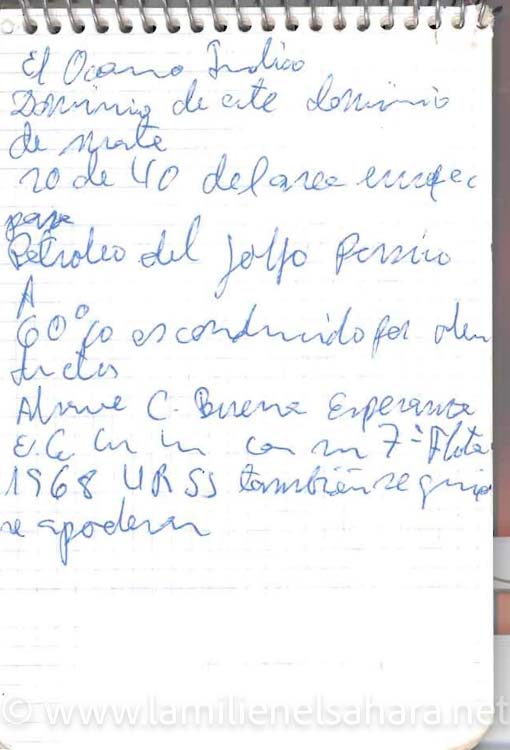 El Oceano Indico
Dominio de este dominio
de marte
20 de 40 del area
para
Petroleo del golfo Persico
A
60% es conducido por oleo
ductos
C. Buena Esperanza
con su 7ª Flota
1968 URSS también se
se apoderan
© www.lamilienelsahara.net